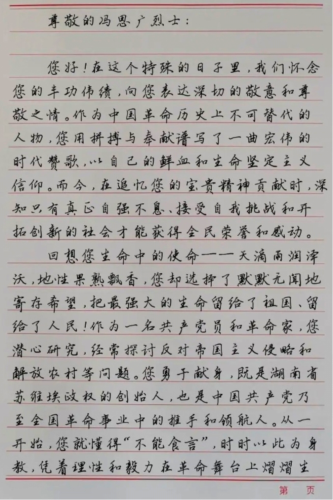 尊敬的冯思广烈士：
您好！在这个特殊的日子里，我们怀念
您的丰功伟绩，向您表达深切的敬意和尊
敬之情。作为中国革命历史上不可替代的
人物，您用拼搏与奉献谱写了一曲宏伟的
时代赞歌，以自己的鲜血和生命坚定主义
信仰。而今，在追忆您的宝贵精神贡献时，深
知只有真正自强不息、接受自我挑战和开
拓创新的社会才能获得全民荣誉和感动。
回想您生命中的使命——天滴雨润泽
沃，地性果熟飘香，您却选择了默默无闻地
寄存希望，把最强大的生命留给了祖国、留
给了人民！作为一名共产党员和革命家，您
潜心研究，经常探讨反对帝国主义侵略和
解放农村等问题。您勇于献身，既是湖南省
苏维埃政权的创始人，也是中国共产党乃
至全国革命事业中的推手和领航人。从一
开始，您就懂得“不能食言”，时时以此为身
教，凭着理性和毅力在革命舞台上熠熠生
第 页